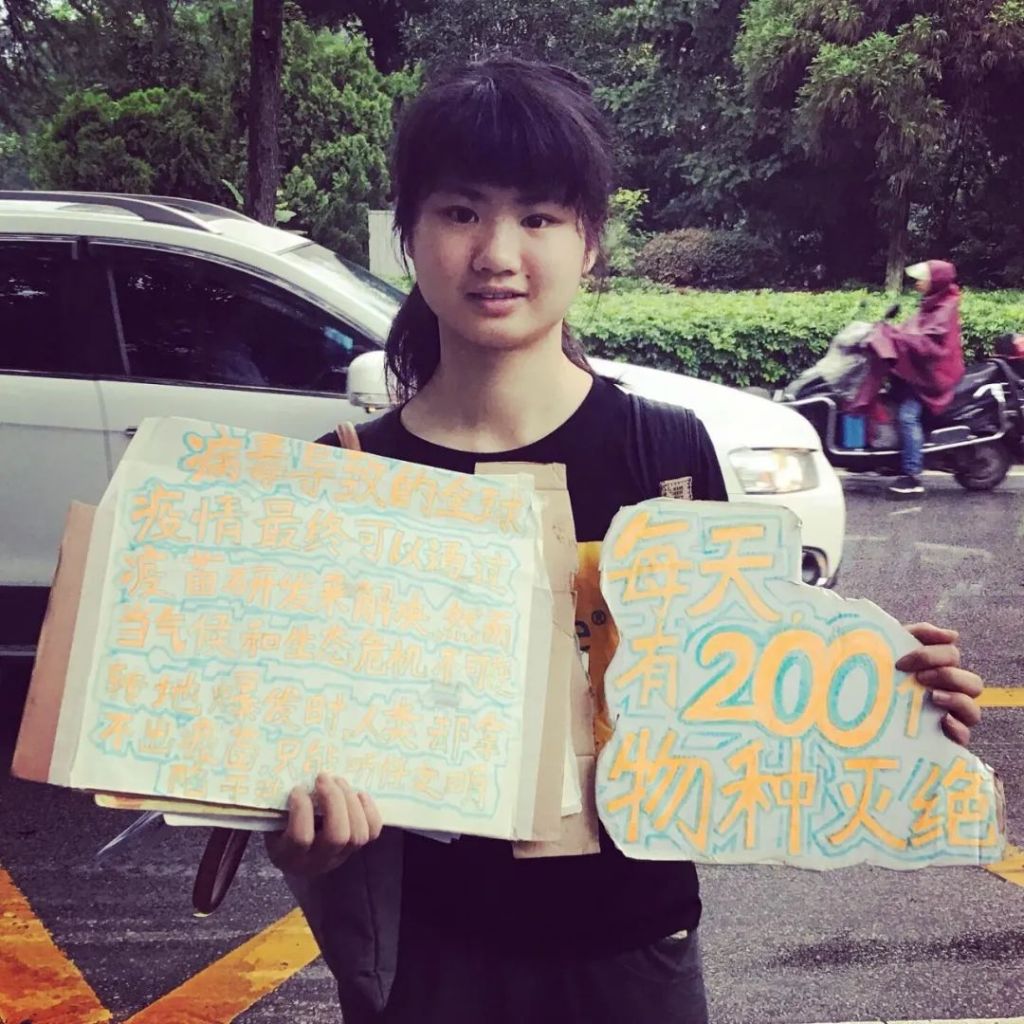 病毒导致的全球
疫情最终可以通过
疫苗研发来解决 然而
当气候和生态危机不可逆
转地爆发时,人类却拿
不出疫苗 只能听任文明
陷于
每天
有200个
物种灭绝